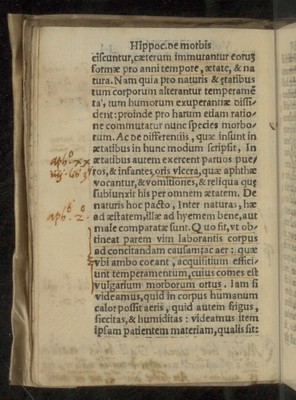 Hippoc.de morbis
ciscuntur,cæterum immutantur eorum
formæ pro anni tempore, ætate, & na
tura. Nam quia pro naturis & ętatibus
tum corporum alterantur temperamē
ta, tum humorum exuperantiæ dissi-
dent: proinde pro harum etiam ratio
ne commutatur nunc species morbo-
rum. Ac de differentiis, quæ insunt in
ætatibus in hunc modum scripsit, In
ætatibus autem exercent paruos pue-
ros, & infantes, oris vlcera, quæ aphthæ
vocantur, & vomitiones, & reliqua quę
subiunxit his per omnem ætatem. De
naturis hoc pacto, Inter naturas, hæ
ad æstatem, illæ ad hyemem bene, aut
male comparatæ sunt. Quo fit, vt ob-
tineat parem vim laborantis corpus
ad concitandam causam, ac aer: quæ
vbi ambo coeant, acquisitium effici
unt temperamentum, cuius comes est
vulgarium morborum ortus. Iam si
videamus, quid in corpus humanum
calor possit aeris, quid autem frigus,
siccitas, & humiditas: videamus item
ipsam patientem materiam, qualis sit: